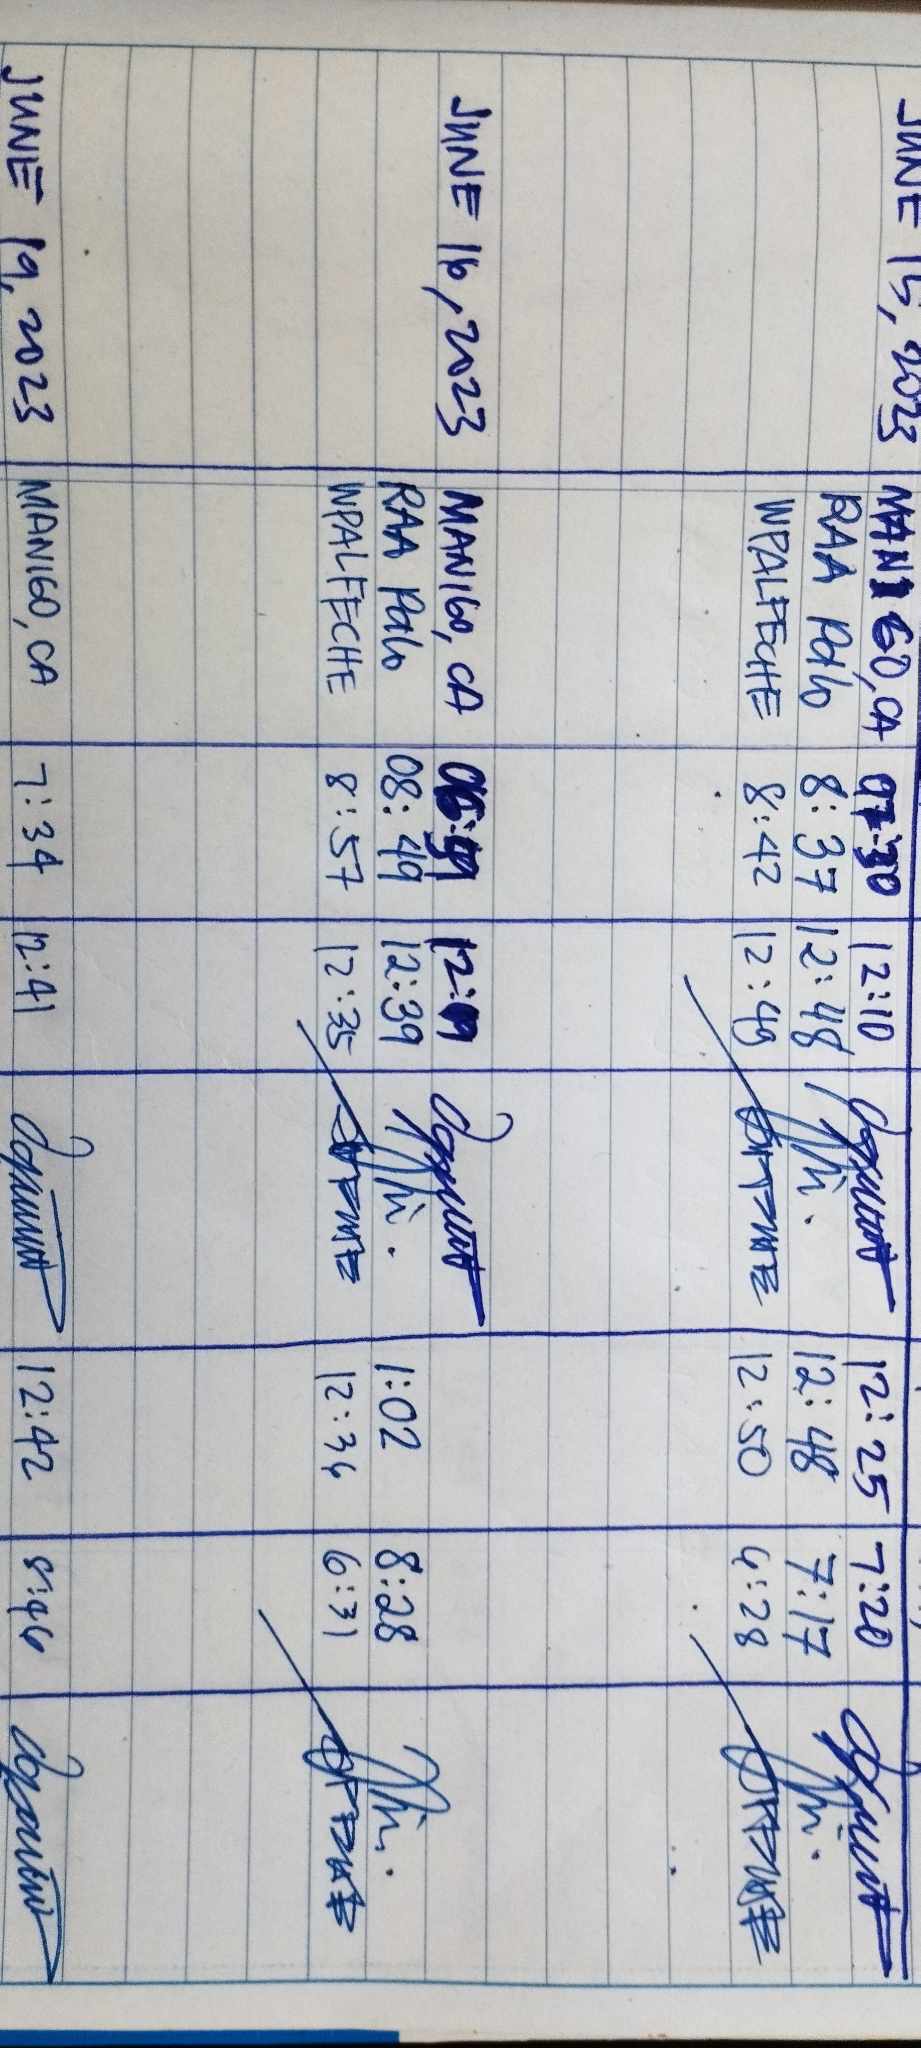 JUNE 15, 2023 MANIGO, CA 07:30 12:10 12:25 7:20
RAA Palo 8:37 12:48 12:48 7:17
WPALFECHE 8:42 12:49 12:50 4:28
JUNE 16, 2023 MANIGO, CA
RAA Palo 08:49 12:39 1:02 8:28
WPALFECHE 8:57 12:35 12:36 6:31
JUNE 19, 2023 MANIGO, CA 7:34 12:41 12:42